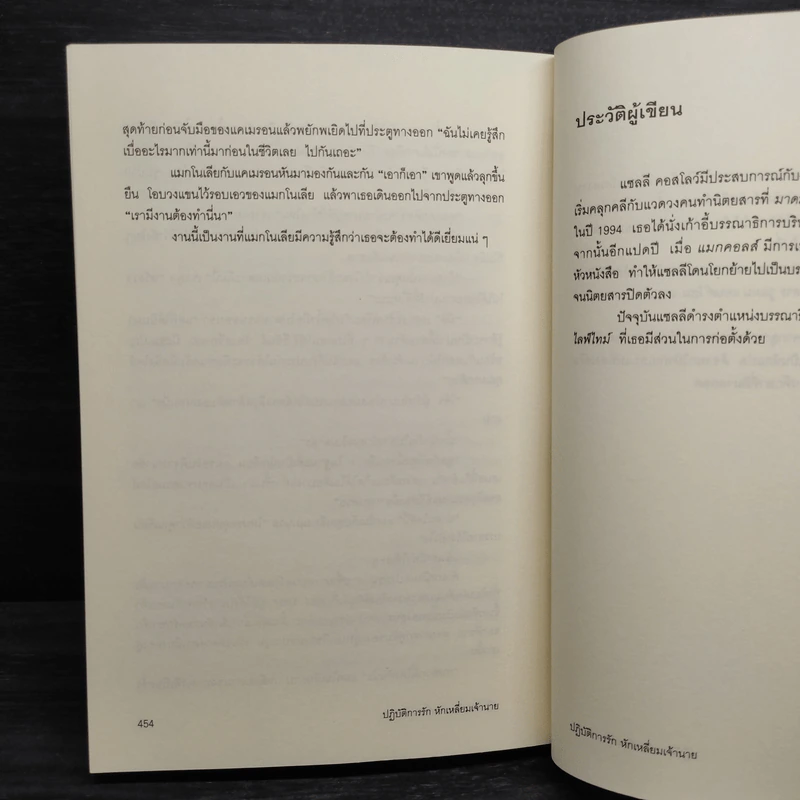 สุดท้ายก่อนจับมือของแคเมรอนแล้วพยักพเยิดไปที่ประตูทางออก “ฉันไม่เคยรู้สึก
เบื่ออะไรมากเท่านี้มาก่อนในชีวิตเลย ไปกันเถอะ”
แมกโนเลียกับแคเมรอนหันมามองกันและกัน “เอาก็เอา” เขาพูดแล้วลุกขึ้น
ยืน โอบวงแขนไว้รอบเอวของแมกโนเลีย แล้วพาเธอเดินออกไปจากประตูทางออก
“เรามีงานต้องทำนี่นา”
งานนี้เป็นงานที่แมกโนเลียมีความรู้สึกว่าเธอจะต้องทำได้ดีเยี่ยมแน่ ๆ
454
ปฏิบัติการรัก หักเหลี่ยมเจ้านาย
ประวัติผู้เขียน
แซลลี คอสโลว์มีประสบการณ์กับ
เริ่มคลุกคลีกับแวดวงคนทำนิตยสารที่
ในปี 1994 เธอได้นั่งเก้าอี้บรรณาธิการบริ
จากนั้นอีกแปดปี เมื่อ แมกคอลส์ มีการเ
หัวหนังสือ ทำให้แซลลีโดนโยกย้ายไปเป็นบร
จนนิตยสารปิดตัวลง
ปัจจุบันแซลลีดำรงตำแหน่งบรรณาธิ
ไลฟ์ไทม์ ที่เธอมีส่วนในการก่อตั้งด้วย
ปฏิบัติการรัก หักเหลี่ยมเจ้านาย